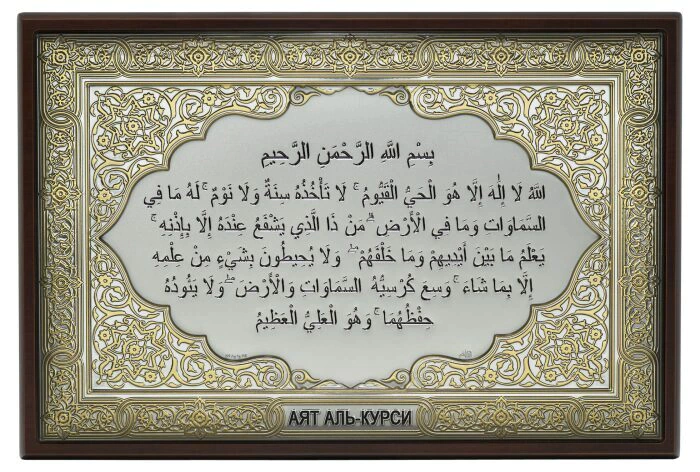 بِسْمِ اللَّهِ الرَّحْمَنِ الرَّحِيمِ
اللَّهُ لَا إِلَٰهَ إِلَّا هُوَ الْحَيُّ الْقَيُّومُ ۚ لَا تَأْخُذُهُ سِنَةٌ وَلَا نَوْمٌ ۚ لَهُ مَا فِي
السَّمَاوَاتِ وَمَا فِي الْأَرْضِ ۗ مَنْ ذَا الَّذِي يَشْفَعُ عِنْدَهُ إِلَّا بِإِذْنِهِ ۚ
يَعْلَمُ مَا بَيْنَ أَيْدِيهِمْ وَمَا خَلْفَهُمْ ۖ وَلَا يُحِيطُونَ بِشَيْءٍ مِنْ عِلْمِهِ
إِلَّا بِمَا شَاءَ ۚ وَسِعَ كُرْسِيُّهُ السَّمَاوَاتِ وَالْأَرْضَ ۖ وَلَا يَئُودُهُ
حِفْظُهُمَا ۚ وَهُوَ الْعَلِيُّ الْعَظِيمُ
АЯТ АЛЬ-КУРСИ